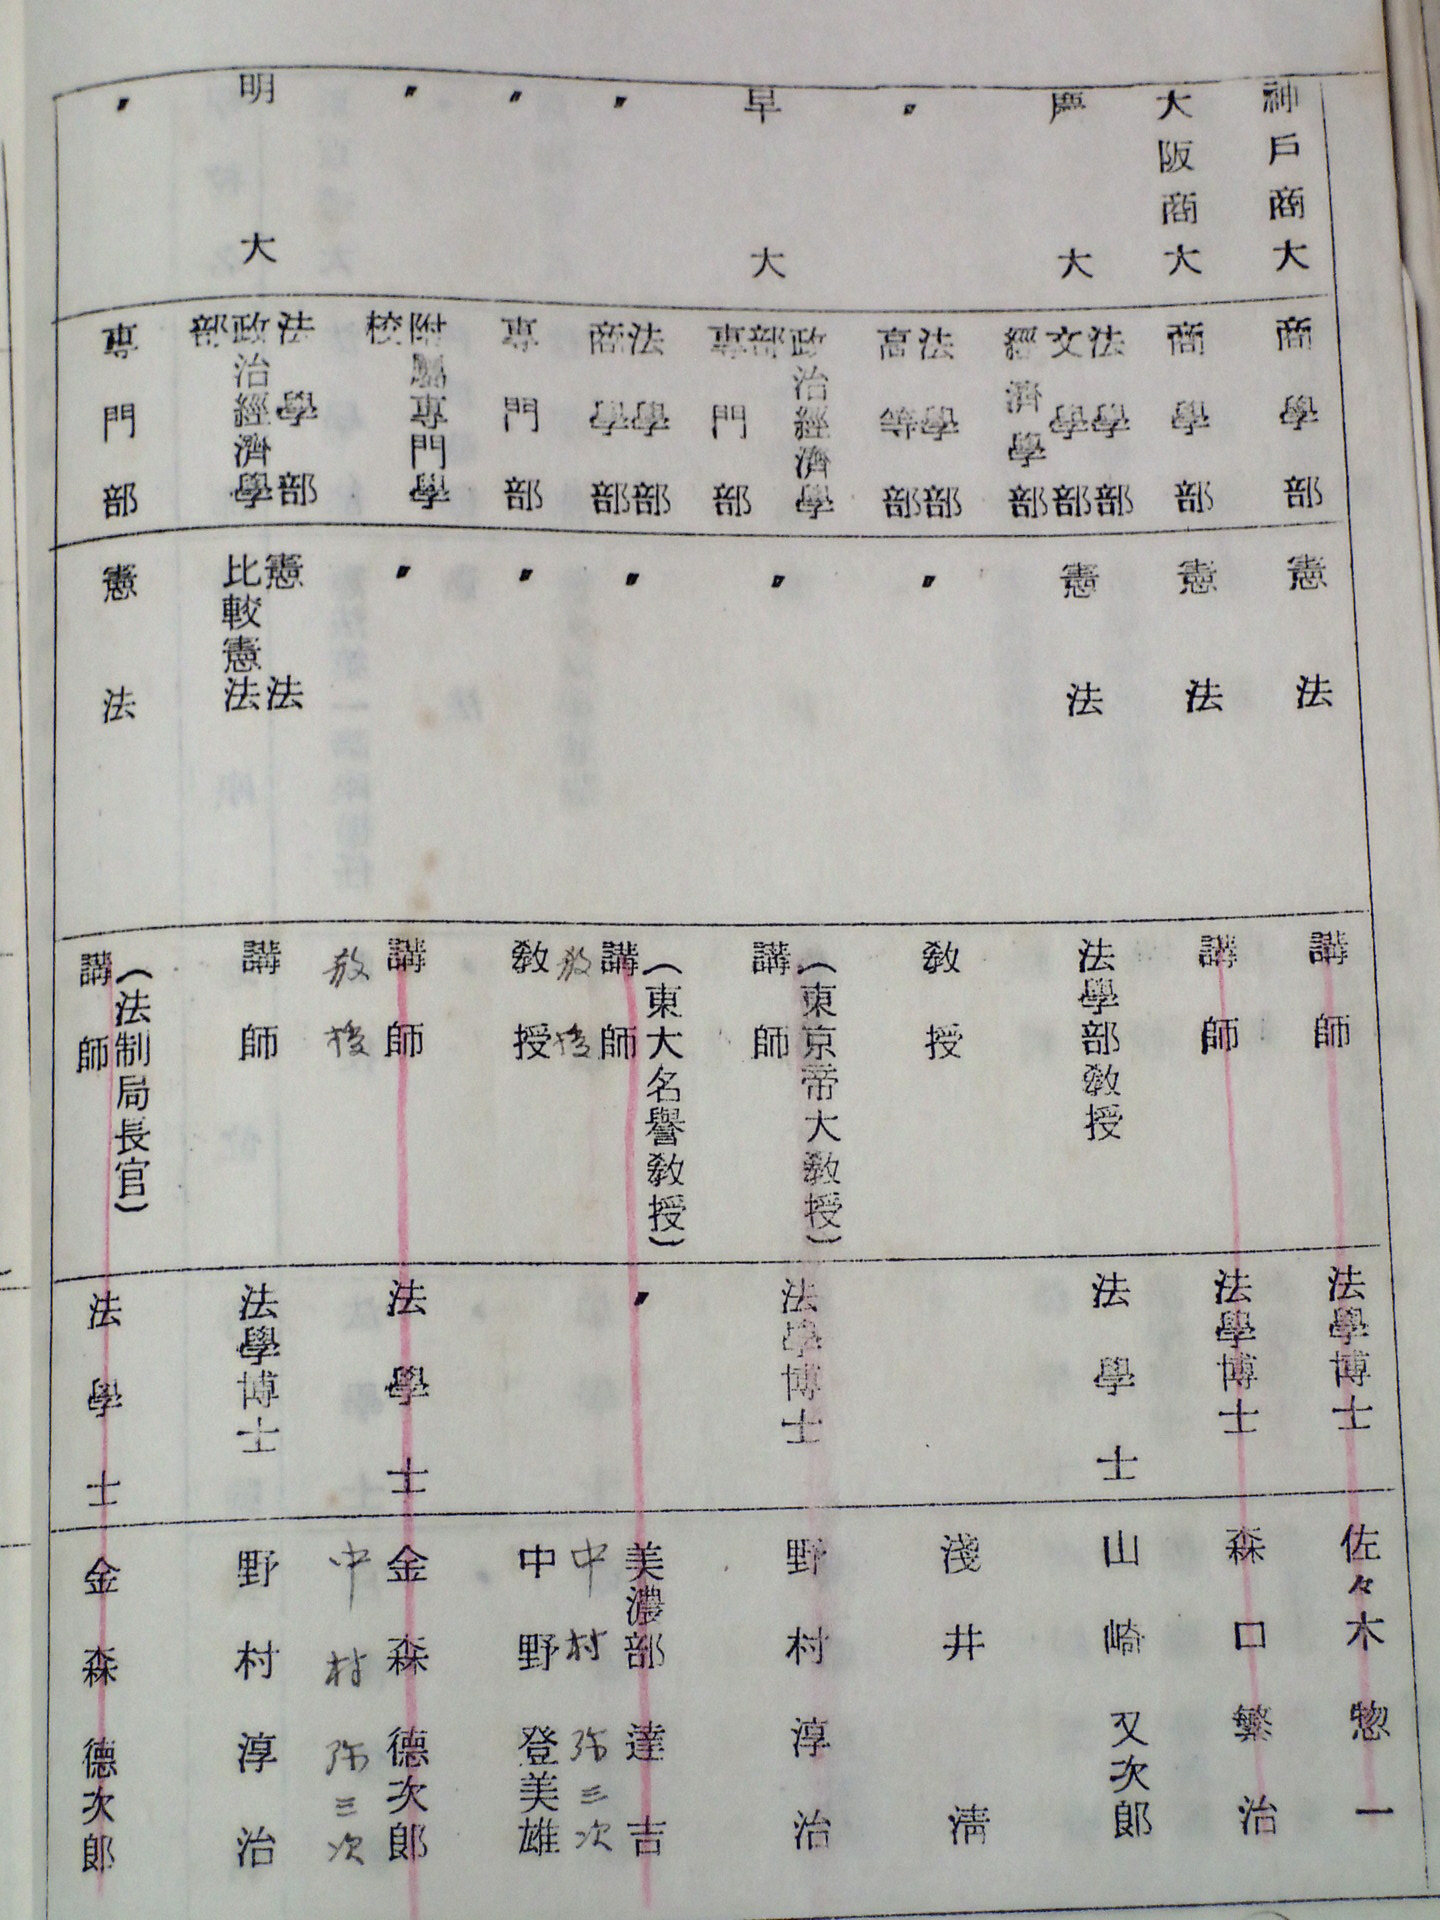 神戶商大 商學部 憲法 講師 法學博士 佐々木惣一
大阪商大 商學部 憲法 講師 法學博士 森口繁治
慶大 法學部 文學部 經濟學部 憲法 法學部敎授 法學士 山崎又次郎
〃 法學部 高等部 〃 敎授 淺井淸
早大 政治經濟學部 專門部 〃 (東京帝大敎授) 講師 法學博士 野村淳治
〃 法學部 商學部 〃 (東大名譽敎授) 講師 〃 美濃部達吉
敎授 中村弥三次
〃 專門部 〃 敎授 中野登美雄
〃 附屬專門學校 〃 講師 法學士 金森德次郎
敎授 中村弥三次
明大 法學部 政治經濟學部 憲法 比較憲法 講師 法學博士 野村淳治
〃 專門部 憲法 (法制局長官) 講師 法學士 金森德次郎